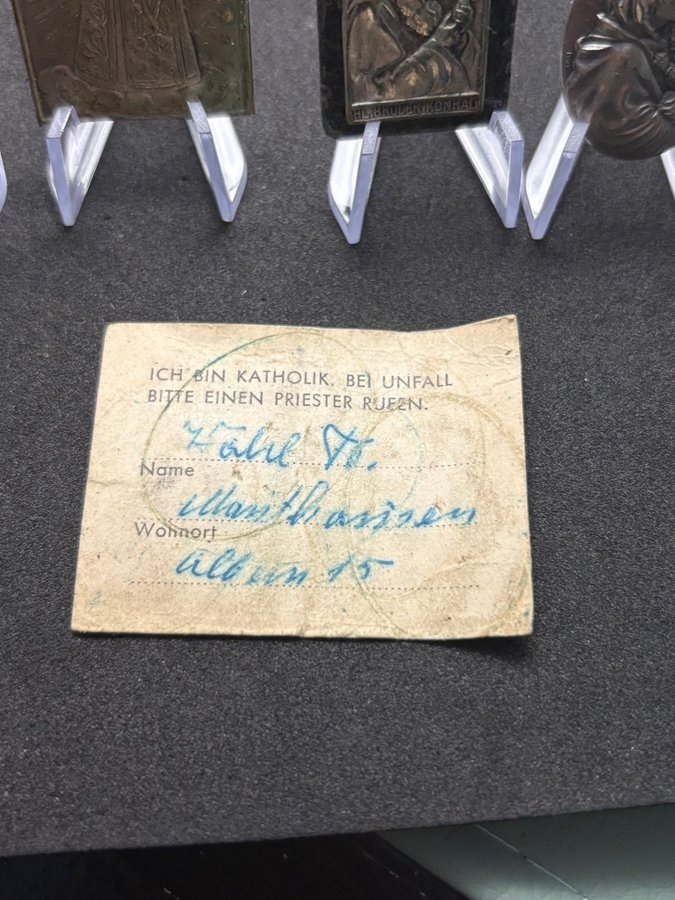 HL. BRUDER KONRAD
ICH BIN KATHOLIK. BEI UNFALL
BITTE EINEN PRIESTER RUFEN.
Name
Mauthausen
Wohnort
Albern 15